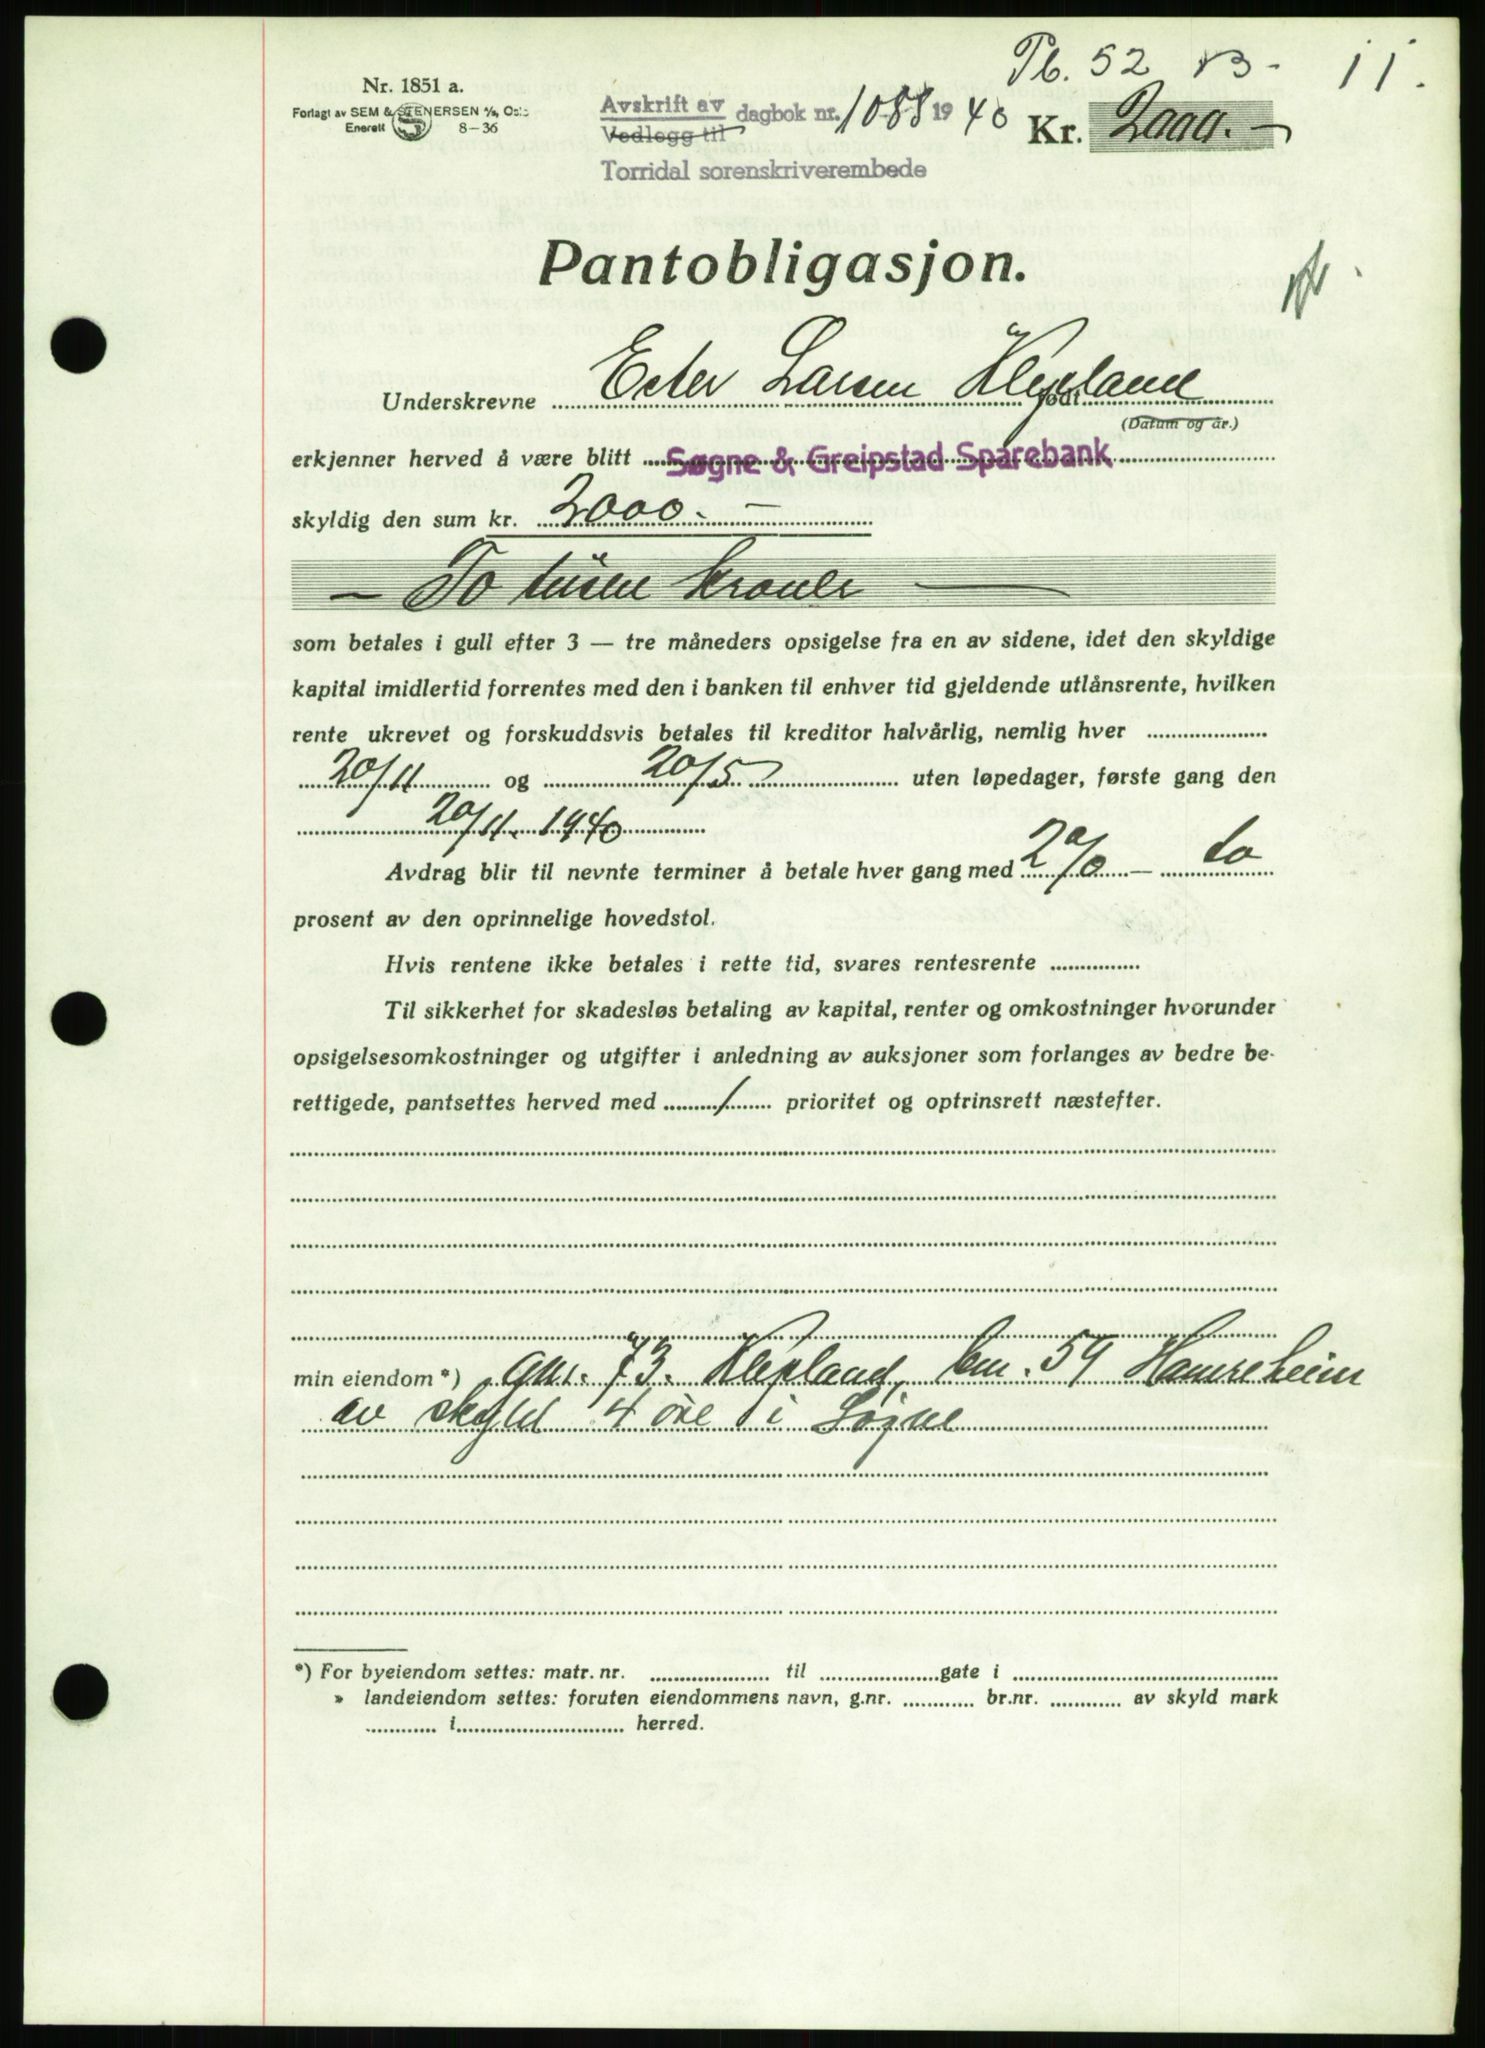 Pb. 52 B - 11.
Nr. 1851 a.
Forlagt av SEM & STENERSEN A/S, Oslo
Enerett 8-36
Avskrift av dagbok nr. 1088 1940
Vedlegg til
Torridal sorenskriverembede
Kr. 2000.-
Pantobligasjon.
Underskrevne Ester Larsen Klepland født
(Datum og år.)
erkjenner herved å være blitt Søgne & Greipstad Sparebank
skyldig den sum kr. 2000.-
- To tusen kroner -
som betales i gull efter 3 — tre måneders opsigelse fra en av sidene, idet den skyldige
kapital imidlertid forrentes med den i banken til enhver tid gjeldende utlånsrente, hvilken
rente ukrevet og forskuddsvis betales til kreditor halvårlig, nemlig hver
20/11 og 20/5 uten løpedager, første gang den
20/11. 1940
Avdrag blir til nevnte terminer å betale hver gang med 2% — to
prosent av den oprinnelige hovedstol.
Hvis rentene ikke betales i rette tid, svares rentesrente
Til sikkerhet for skadesløs betaling av kapital, renter og omkostninger hvorunder
opsigelsesomkostninger og utgifter i anledning av auksjoner som forlanges av bedre be-
rettigede, pantsettes herved med 1 prioritet og optrinsrett næstefter.
min eiendom *) gnr. 73. Klepland, bnr. 59 Hamreheim
av skyld 4 øre i Søgne
*) For byeiendom settes: matr. nr. til gate i
» landeiendom settes: foruten eiendommens navn, g.nr. br.nr. av skyld mark
i herred.